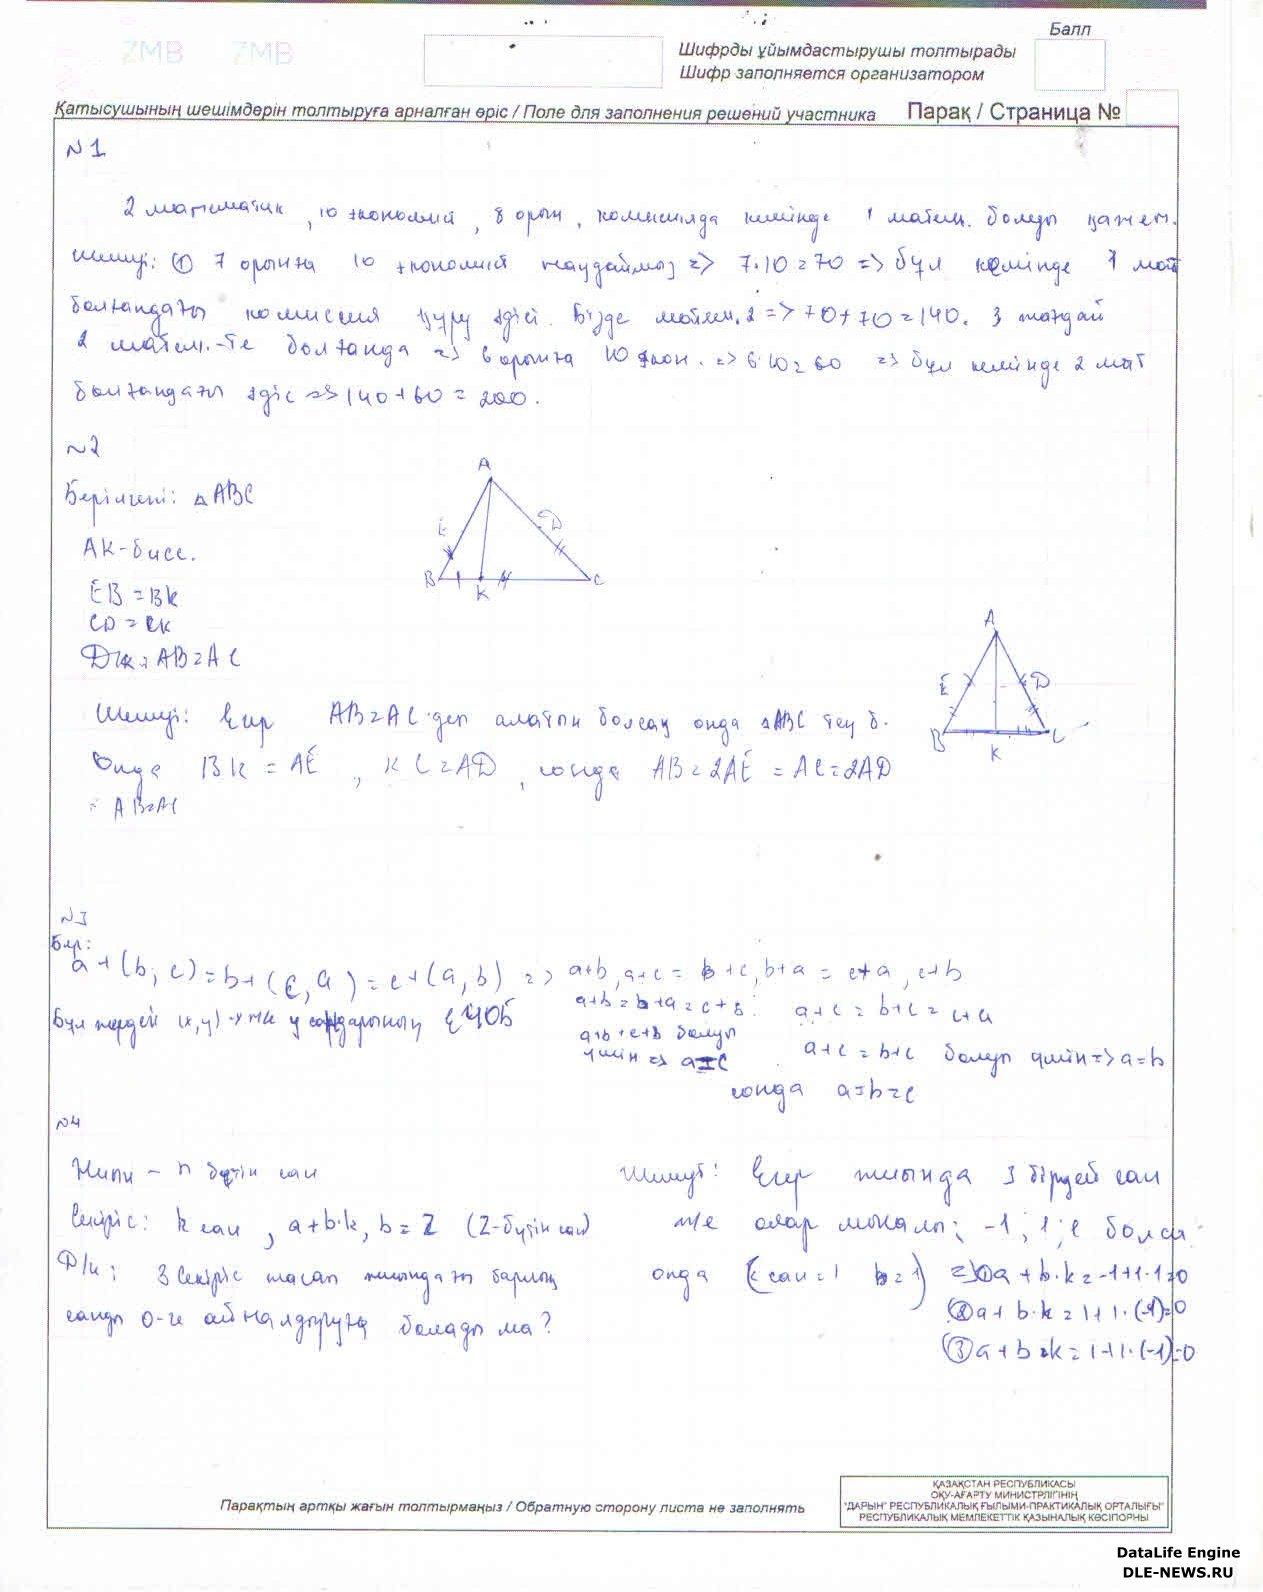 ZMB ZMB
Балл
Шифрды ұйымдастырушы толтырады
Шифр заполняется организатором
Қатысушының шешімдерін толтыруға арналған өріс / Поле для заполнения решений участника Парақ / Страница №
№1
2 математик, 10 экономист, 8 орын, комиссияда кемінде 1 матем. болуы қажет.
Шешуі: ① 7 орынға 10 экономист таңдаймыз => 7·10=70 => бұл кемінде 1 мат
болғандағы комиссия құру әдісі. Бізде матем. 2 => 70+70=140. 3 жағдай
2 матем.-те болғанда => 6 орынға 10 экон. => 6·10=60 => бұл кемінде 2 мат
болғандағы әдіс => 140+60=200.
№2
Берілгені: △ABC
AK-бисс.
EB=BK
CD=CK
Д/к: AB=AC
A
E
D
B
K
C
A
E
D
B
K
C
Шешуі: Егер AB=AC деп алатын болсақ онда △ABC тең б.
Онда BK=AE, KC=AD, сонда AB=2AE=AC=2AD
AB=AC
№3
Бер:
a+(b,c)=b+(c,a)=c+(a,b) => a+b,a+c=b+c,b+a=c+a,c+b
Бұл жердей (x,y)-х пен у сандарының ЕҮОБ
a+b=b+a=c+b a+c=b+c=c+a
a+b=c+b болуы
үшін => a=c
a+c=b+c болуы үшін => a=b
сонда a=b=c
№4
Жиын – n бүтін сан
Секіріс: k сан, a+b·k, b=Z (Z-бүтін сан)
Д/к: 3 секіріс жасап жиындағы барлық
санды 0-ге айналдыруға болады ма?
Шешуі: Егер жиында 3 бірдей сан
ж/е олар мысалы; -1; 1; 1 болса
онда (k сан=1 b=1) => ①a+b·k=-1+1·1=0
②a+b·k=1+1·(-1)=0
③a+b·k=1+1·(-1)=0
Парақтың артқы жағын толтырмаңыз / Обратную сторону листа не заполнять
ҚАЗАҚСТАН РЕСПУБЛИКАСЫ
ОҚУ-АҒАРТУ МИНИСТРЛІГІНІҢ
"ДАРЫН" РЕСПУБЛИКАЛЫҚ ҒЫЛЫМИ-ПРАКТИКАЛЫҚ ОРТАЛЫҒЫ"
РЕСПУБЛИКАЛЫҚ МЕМЛЕКЕТТІК ҚАЗЫНАЛЫҚ КӘСІПОРНЫ
DataLife Engine
DLE-NEWS.RU